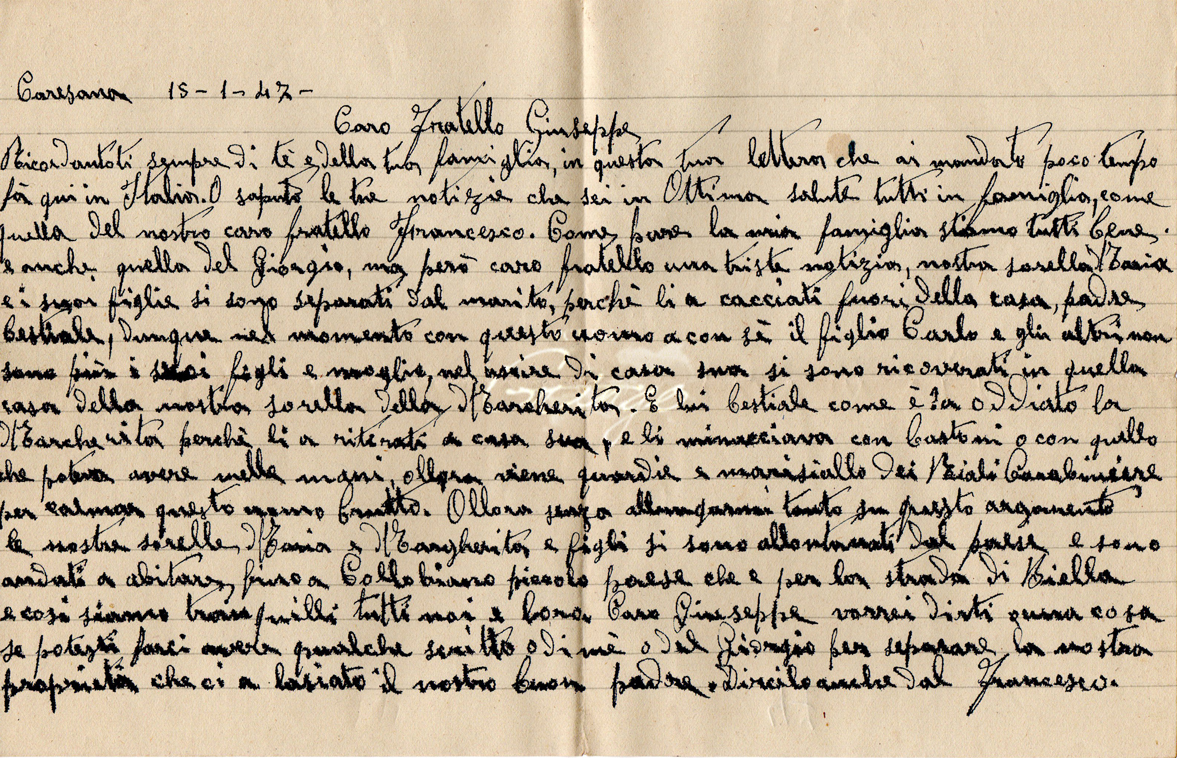 Caresana 15-1-47-
Caro Fratello Giuseppe
Ricordantoti sempre di tè e della tua famiglia, in questa tua lettera che ai mandato poco tempo
fà qui in Italia. O saputo le tue notizie che sei in Ottima salute tutti in famiglia, come
quella del nostro caro fratello Francesco. Come pure la mia famiglia stiamo tutti bene.
e anche quella del Giorgio, ma però caro fratello una triste notizia, nostra sorella Maria
e i suoi figlie si sono separati dal marito, perchè li a cacciati fuori della casa, padre
bestiale, dunque nel momento con questo uomo a con sè il figlio Carlo e gli altri non
sono più i suoi figli e moglie, nel uscire di casa sua si sono ricoverati in quella
casa della nostra sorella della Margherita. E lui bestiale come è la oddiato la
Margherita perchè li a ritirati a casa sua, e li minacciava con bastoni o con quello
che poteva avere nelle mani, ollora viene guardie e marisiallo dei Reiali Carabiniere
per calmar questo uomo brutto. Ollora senza allungarmi tanto su questo argomento
le nostre sorelle Maria e Margherita e figli si sono allontanati dal paese e sono
andati a abitare, fino a Collobiano piccolo paese che e per la strada di Biella
e così siamo tranquilli tutti noi e loro. Caro Giuseppe vorrei dirti una cosa
se potessi farci avere qualche scritto o di mè o dal Giorgio per separare la nostra
proprietà che ci a lasiato il nostro buon padre. Dircilo anche dal Francesco.